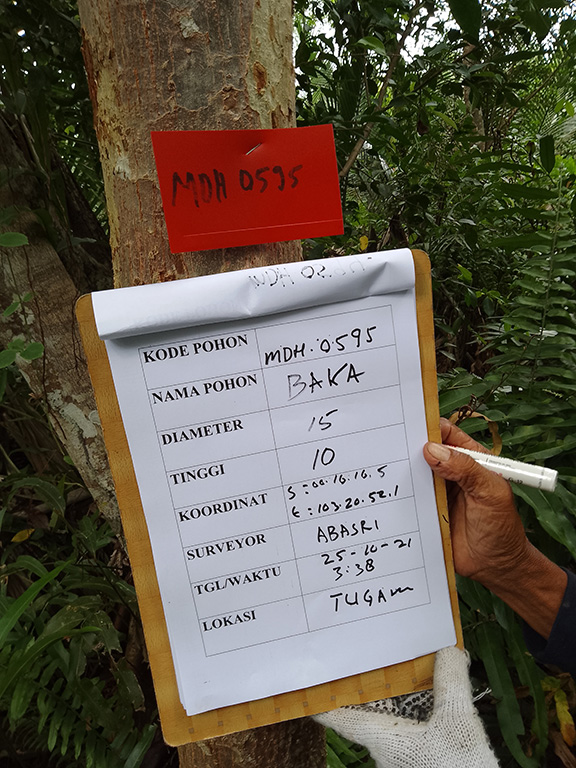 MDH 0595
KODE POHON MDH.0595
NAMA POHON BAKA
DIAMETER 15
TINGGI 10
KOORDINAT S:00.16.16.5
E:103.20.52.1
SURVEYOR ABASRI
TGL/WAKTU 25-10-21
3:38
LOKASI